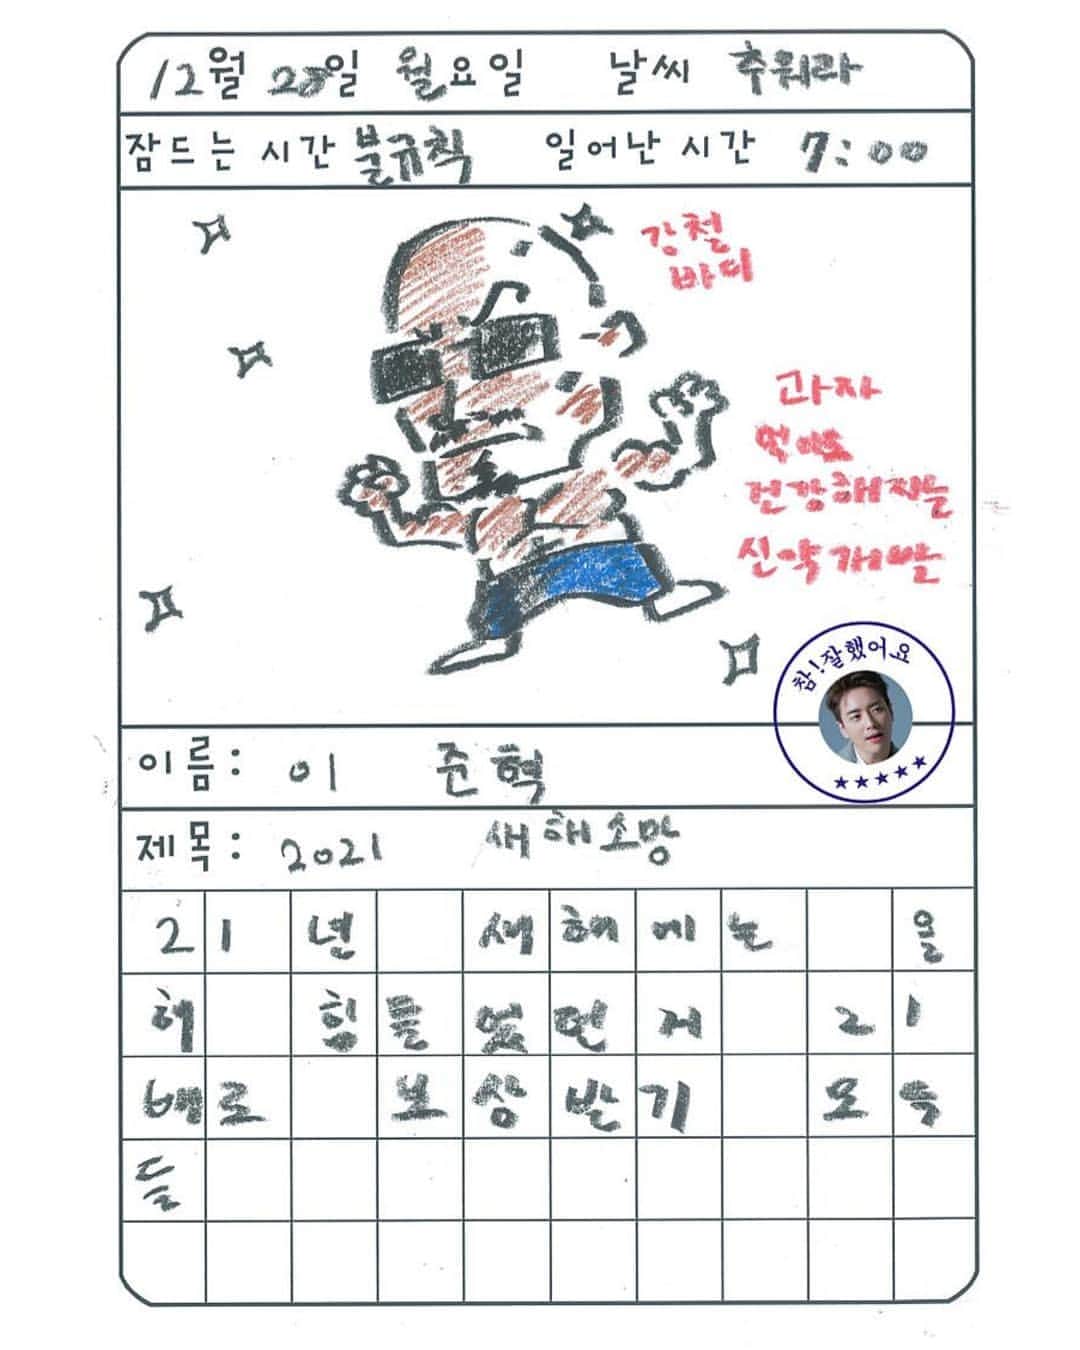 12월 28일 월요일 날씨 추워라
잠드는 시간 불규칙 일어난 시간 7:00
강철
바디
과자
먹어도
건강해지는
신약 개발
참!잘했어요
이름: 이 준혁
제목: 2021 새해소망
21년 새해에는 올
해 힘들었던거 21
배로 보상받기 모두
들